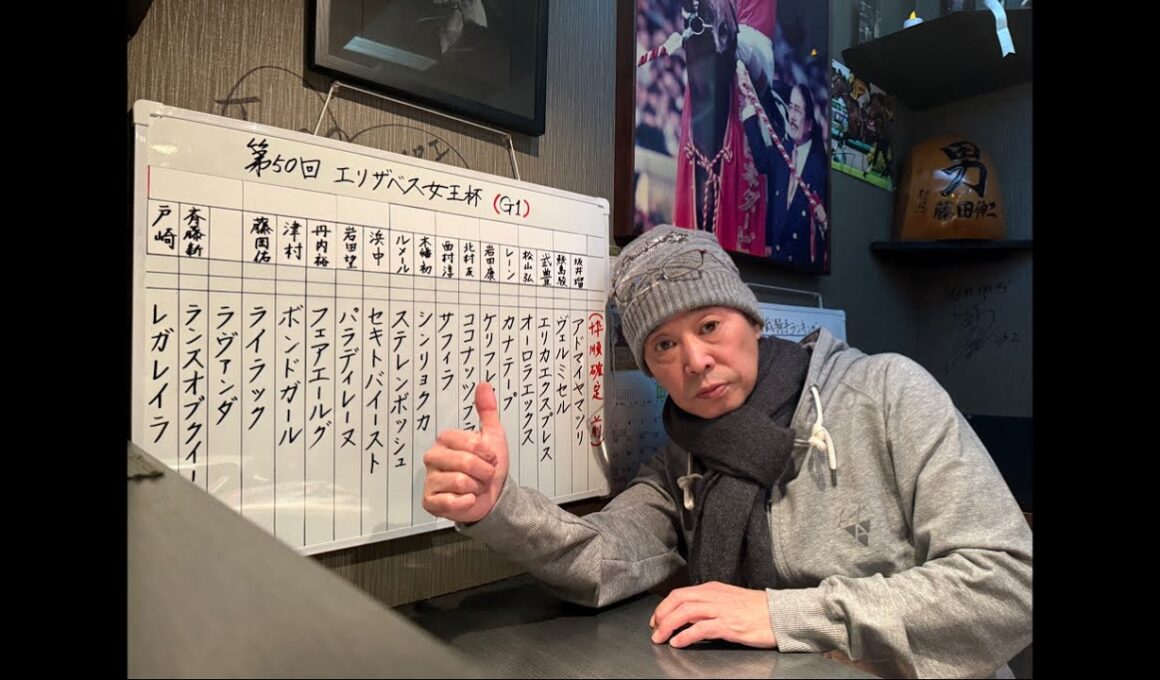 第50回 エリザベス女王杯 (G1)
(枠順確定前)
坂井瑠 アドマイヤマツリ
鮫島駿 ヴェルミセル
武豊 エリカエクスプレス
松山弘 オーロラエックス
レーン カナテープ
岩田康 ケリフレ
北村友 ココナッツブラ
西村淳 サフィラ
木幡初 シンリョクカ
ルメール ステレンボッシュ
浜中 セキトバイースト
岩田望 パラディレーヌ
丹内裕 フェアエールグ
津村 ボンドガール
藤岡佑 ライラック
ラヴァンダ
斉藤新 ランスオブクイー
戸崎 レガレイラ
男
藤田伸二